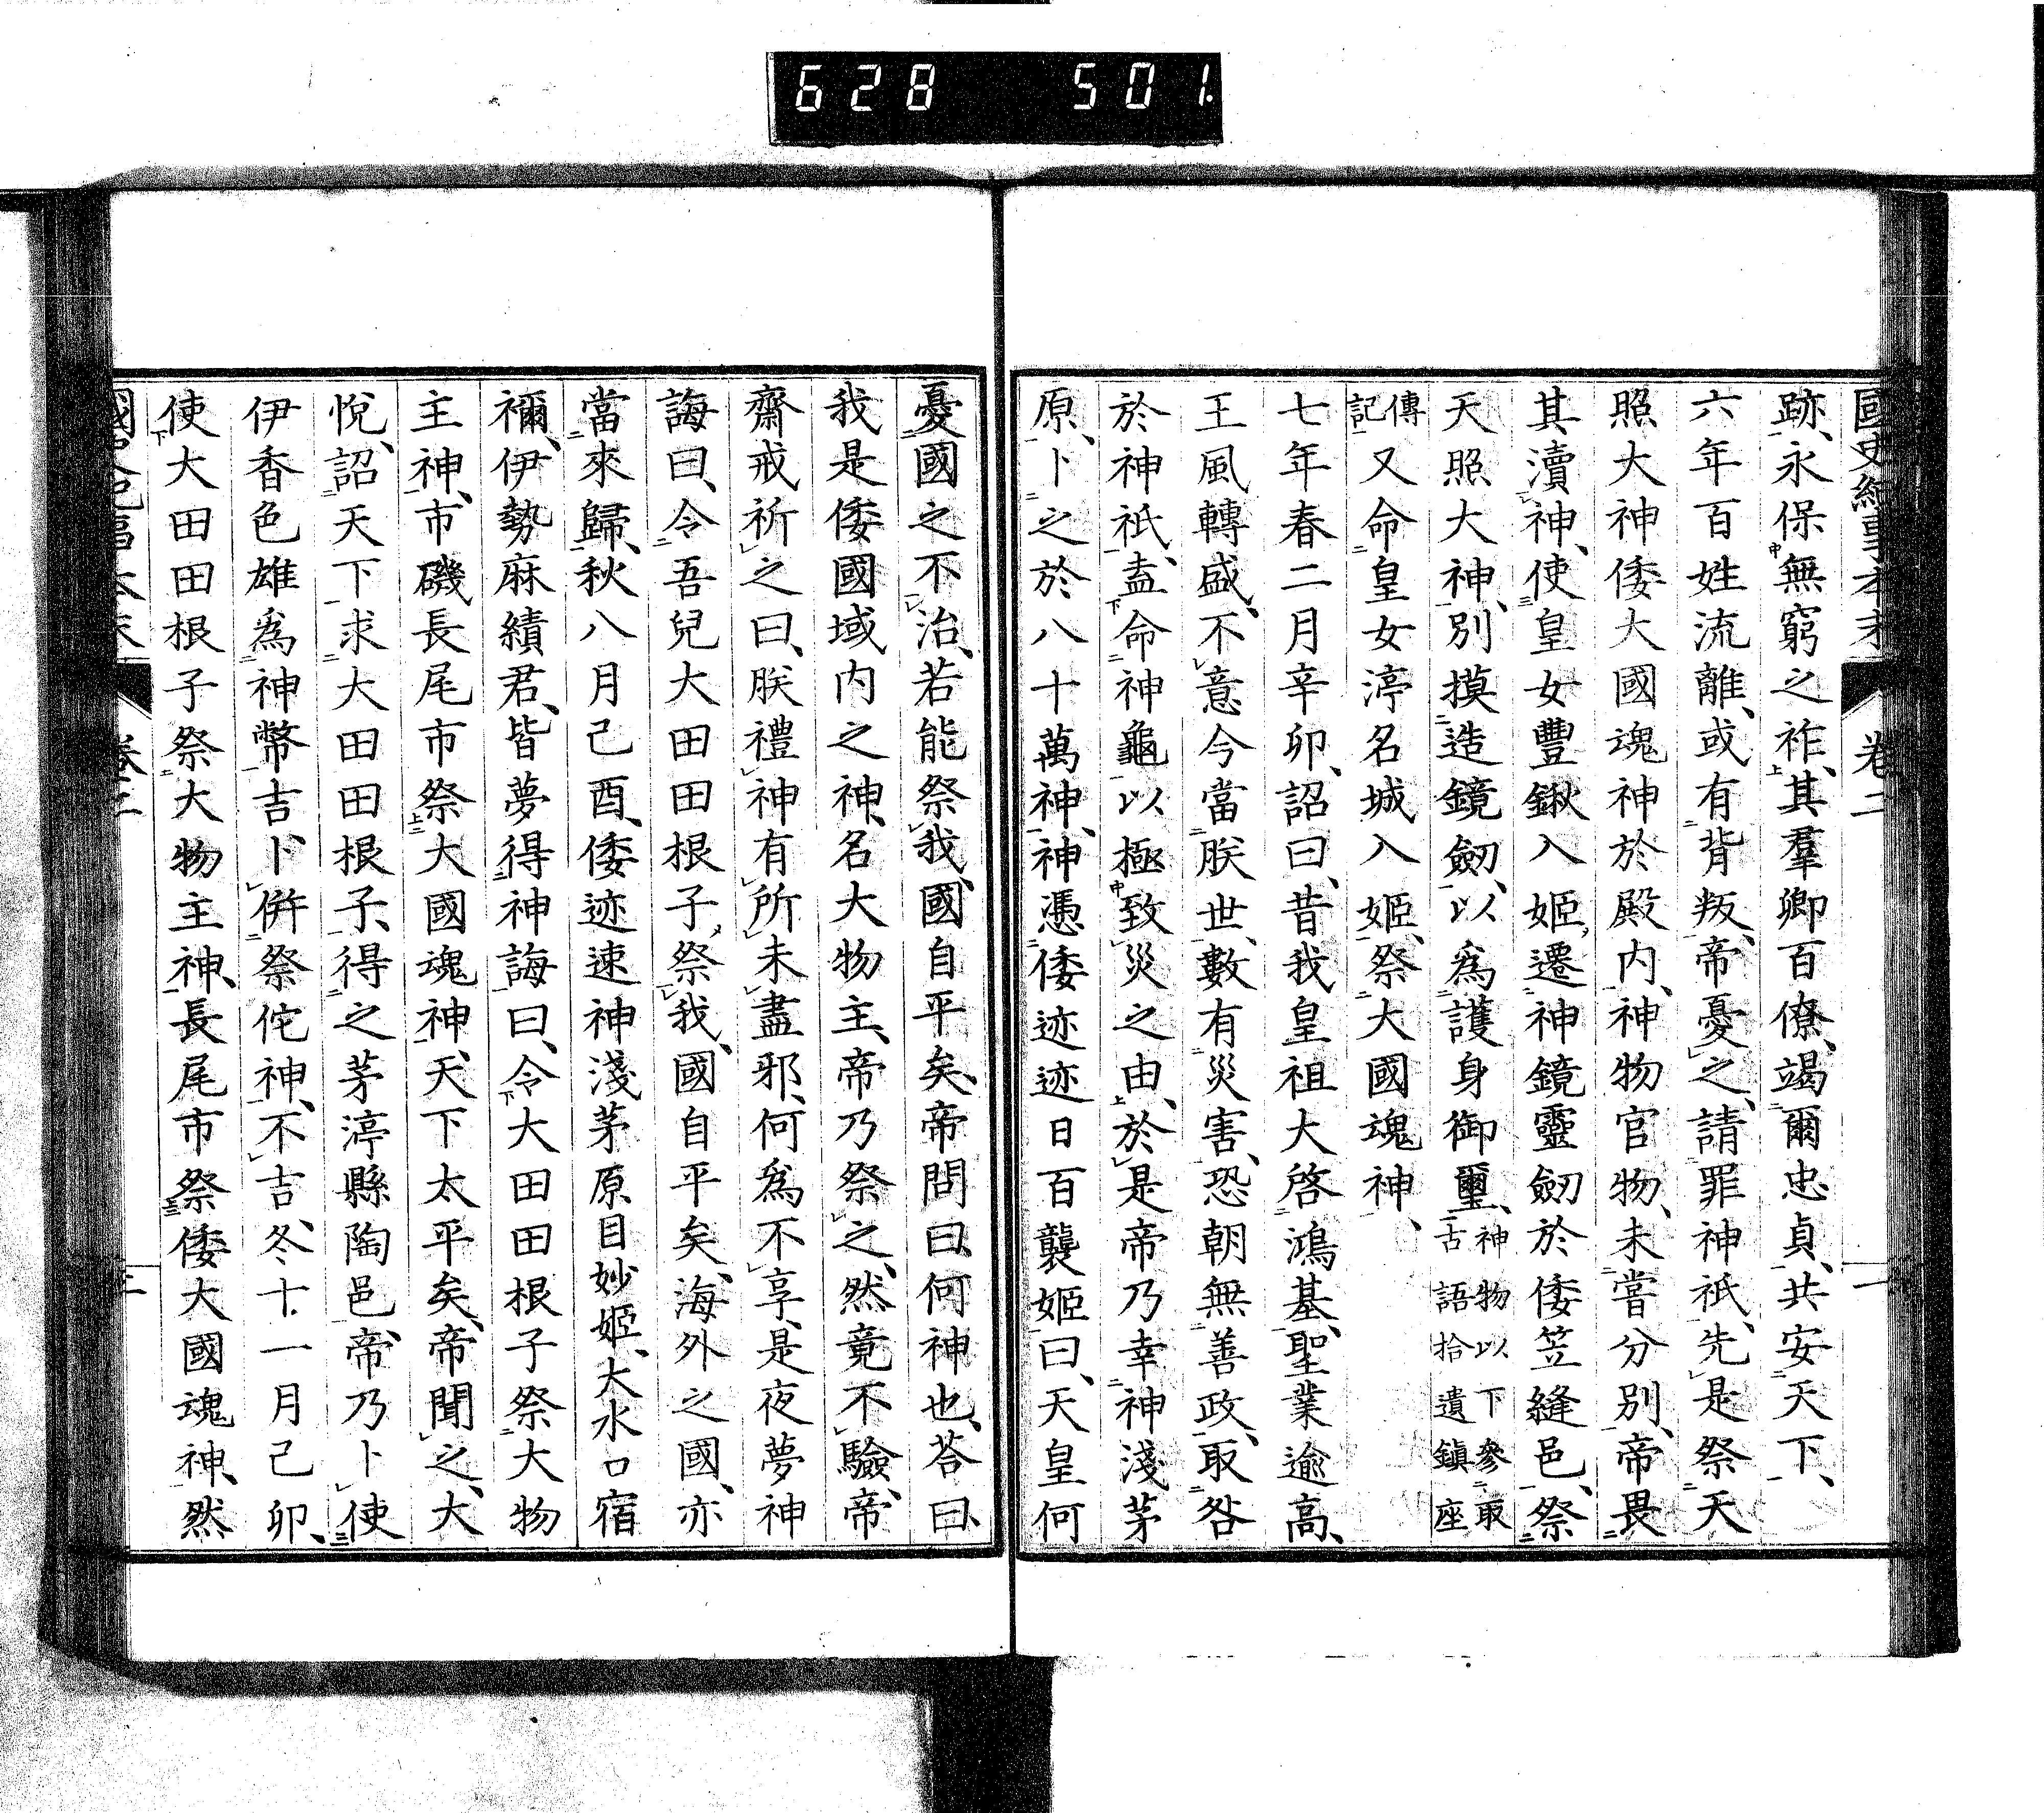 628 501.
國史紀事本末 卷二 二
跡、永保無窮之祚、其羣卿百僚、竭爾忠貞、共安天下、
六年百姓流離、或有背叛、帝憂之、請罪神祇、先是祭天
照大神倭大國魂神於殿内、神物官物、未嘗分別、帝畏
其瀆神、使皇女豐鍬入姬、遷神鏡靈劒於倭笠縫邑、祭
天照大神、別摸造鏡劒、以爲護身御璽、神物以下參取
古語拾遺鎮座
傳
記
又命皇女渟名城入姬、祭大國魂神、
七年春二月辛卯、詔曰、昔我皇祖大啓鴻基、聖業逾高、
王風轉盛、不意今當朕世、數有災害、恐朝無善政、取咎
於神祇、盍命神龜以極致災之由、於是帝乃幸神淺茅
原、卜之於八十萬神、神憑倭迹迹日百襲姬曰、天皇何
憂國之不治、若能祭我、國自平矣、帝問曰、何神也、荅曰、
我是倭國域内之神、名大物主、帝乃祭之、然竟不驗、帝
齋戒祈之曰、朕禮神有所未盡邪、何爲不享、是夜夢神
誨曰、令吾兒大田田根子、祭我、國自平矣、海外之國、亦
當來歸、秋八月己酉、倭迹速神淺茅原目妙姬、大水口宿
禰、伊勢麻績君、皆夢得神誨曰、令大田田根子祭大物
主神、市磯長尾市祭大國魂神、天下太平矣、帝聞之、大
悅、詔天下求大田田根子、得之茅渟縣陶邑、帝乃卜使
伊香色雄爲神幣吉、卜併祭佗神、不吉、冬十一月己卯、
使大田田根子祭大物主神、長尾市祭倭大國魂神、然
國史紀事本末 卷二 三